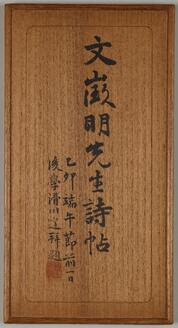 文徵明先生詩帖
乙卯端午節前一日
後學滑川達拜題